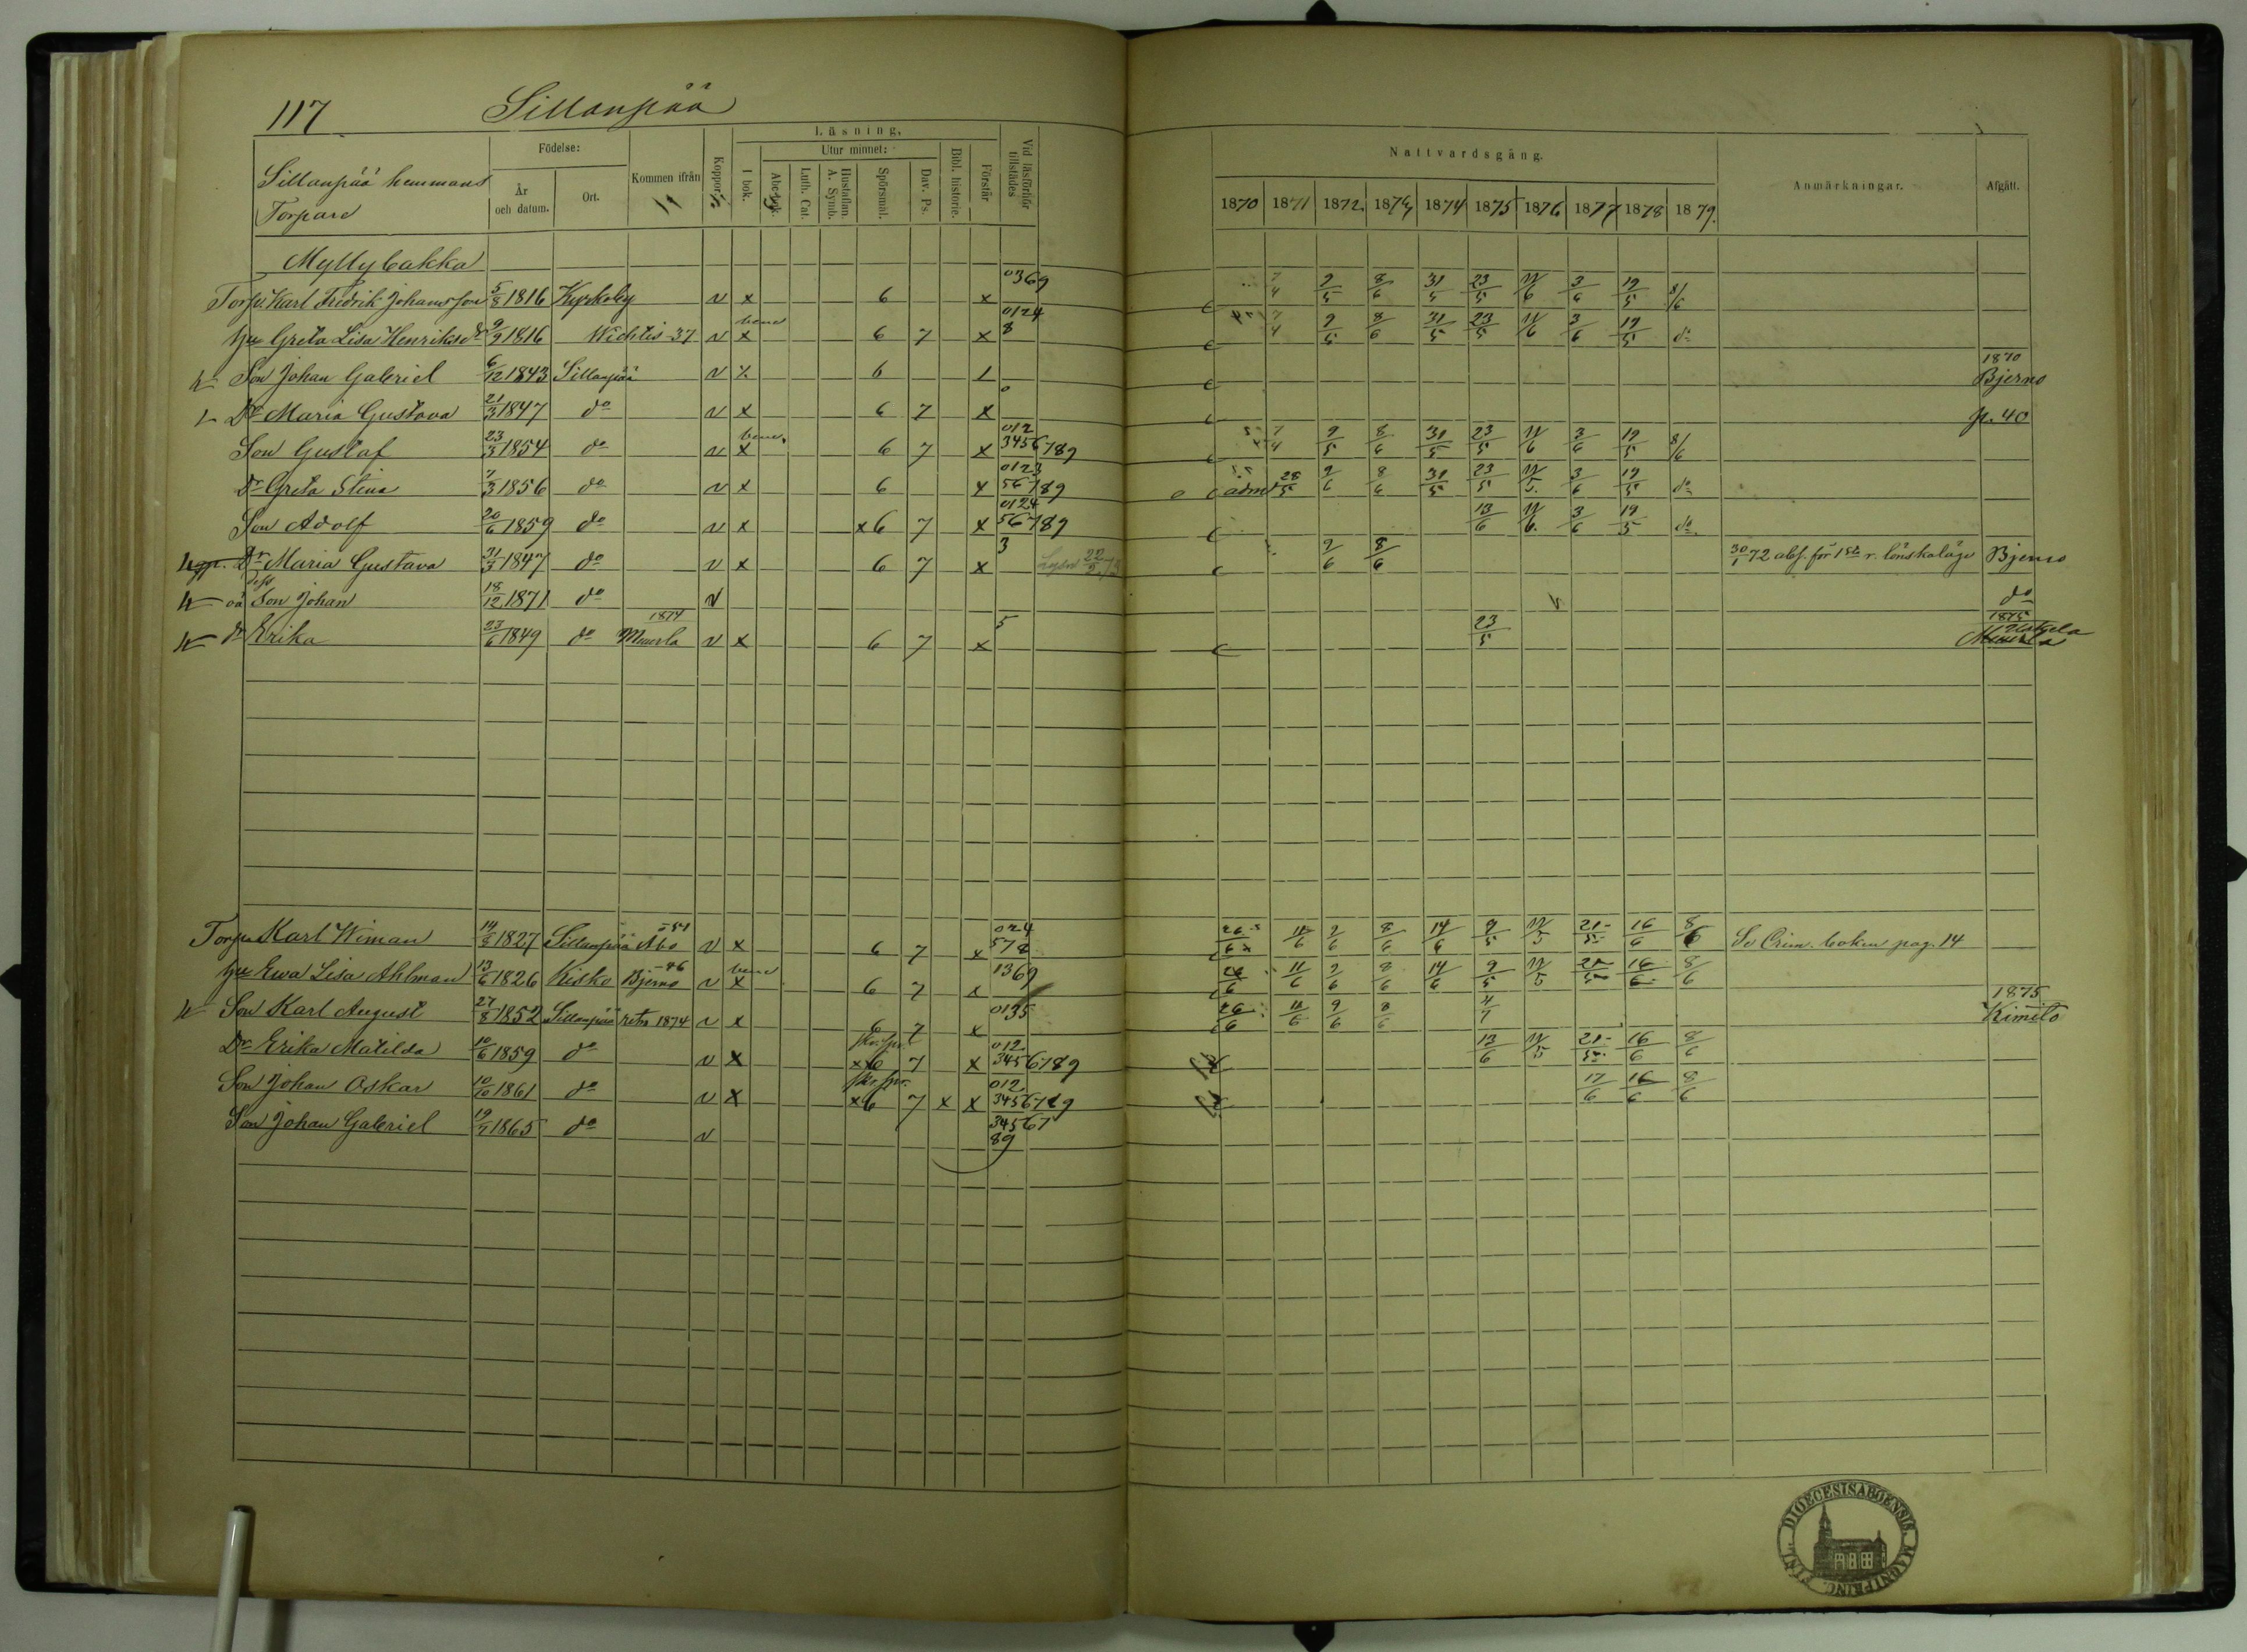 117 Sillanpää
Sillanpää hemmans
Torpare
Födelse:
År och datum.
Ort.
Kommen ifrån
Koppor.
Läsning,
I bok.
Utur minnet:
Abc-bok.
Luth. Cat.
Hustaflan. A. Symb.
Spörsmål.
Dav. Ps.
Bibl. historie.
Förstår
Vid läsförhör tillstädes
Nattvardsgång.
1870 1871 1872 1873 1874 1875 1876 1877 1878 1879
Anmärkningar.
Afgått.
Myllybakka
Torp. Karl Fredrik Johansson 5/8 1816 Kyrkoby v x 6 x 0369 7/4 9/5 8/6 31/5 23/5 11/6 3/6 19/5 8/6
Hu Greta Lisa Henriksdr 9/9 1816 Wichtis -37 v x bene 6 7 x 0124 8 7/4 9/5 8/6 31/5 23/5 11/6 3/6 19/5 do
Son Johan Gabriel 6/12 1843 Sillanpää v 6 1870 Bjerno
Dr Maria Gustava 21/3 1847 do v x 6 7 x 0 p. 40
Son Gustaf 23/3 1854 do v x bene 6 7 x 012 3456789 7/4 9/5 8/6 31/5 23/5 11/6 3/6 19/5 8/6
Dr Greta Stina 7/3 1856 do v x 6 x 0123 56789 adm 28/5 9/6 8/6 31/5 23/5 11/5 3/6 19/5 do
Son Adolf 20/6 1859 do v x x6 7 x 0124 56789 13/6 11/6 3/6 19/5 do
Dr Maria Gustava 31/3 1847 do v x 6 7 x 3 9/6 8/6 30/1 72 abs. för 1sta r. lönskaläge Bjerno
dess oä Son Johan 18/12 1871 do v do
dr Erika 23/6 1849 do 1874 Muurla v x 6 7 x 5 23/5 1875 Muurla
Torp. Karl Wiman 14/8 1827 Sillanpää Åbo -51 v x 6 7 x 024 578 26/6 11/6 9/6 8/6 14/6 9/5 11/5 21/5 16/6 8/6 Se Crim. boken pag. 14
Hu Ewa Lisa Ahlman 13/6 1826 Kisko Bjerno -46 v x bene 6 7 x 1369 26/6 11/6 9/6 8/6 14/6 9/5 11/5 21/5 16/6 8/6
Son Karl August 27/8 1852 Sillanpää retr 1874 v x 6 7 x 0135 26/6 11/6 9/6 8/6 4/7 1875 Kimito
Dr Erika Matilda 10/6 1859 do v x x6 7 x 012 3456789 13/6 11/5 21/5 16/6 8/6
Son Johan Oskar 10/10 1861 do v x x6 7 x x 012 3456789 17/6 16/6 8/6
Son Johan Gabriel 19/7 1865 do v 34567 89
DIOECESIS ABOENSIS MAGNI PRINC. FINL.